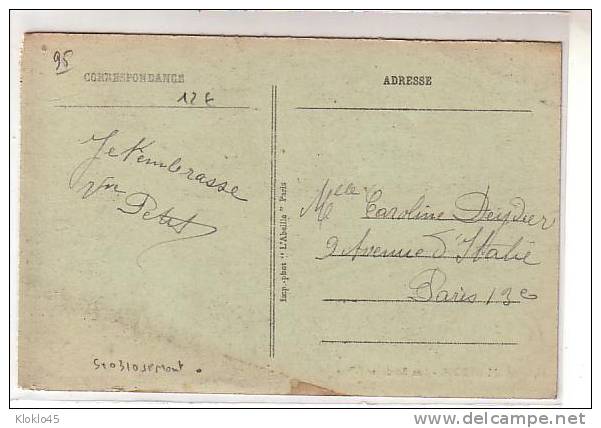 95
CORRESPONDANCE
ADRESSE
12 €
Je t'embrasse
Petit
Imp.-phot " L'Abeille " Paris
Mlle Caroline Deydier
9 Avenue d'Italie
Paris 13e
Kloklo45
delcampe.net